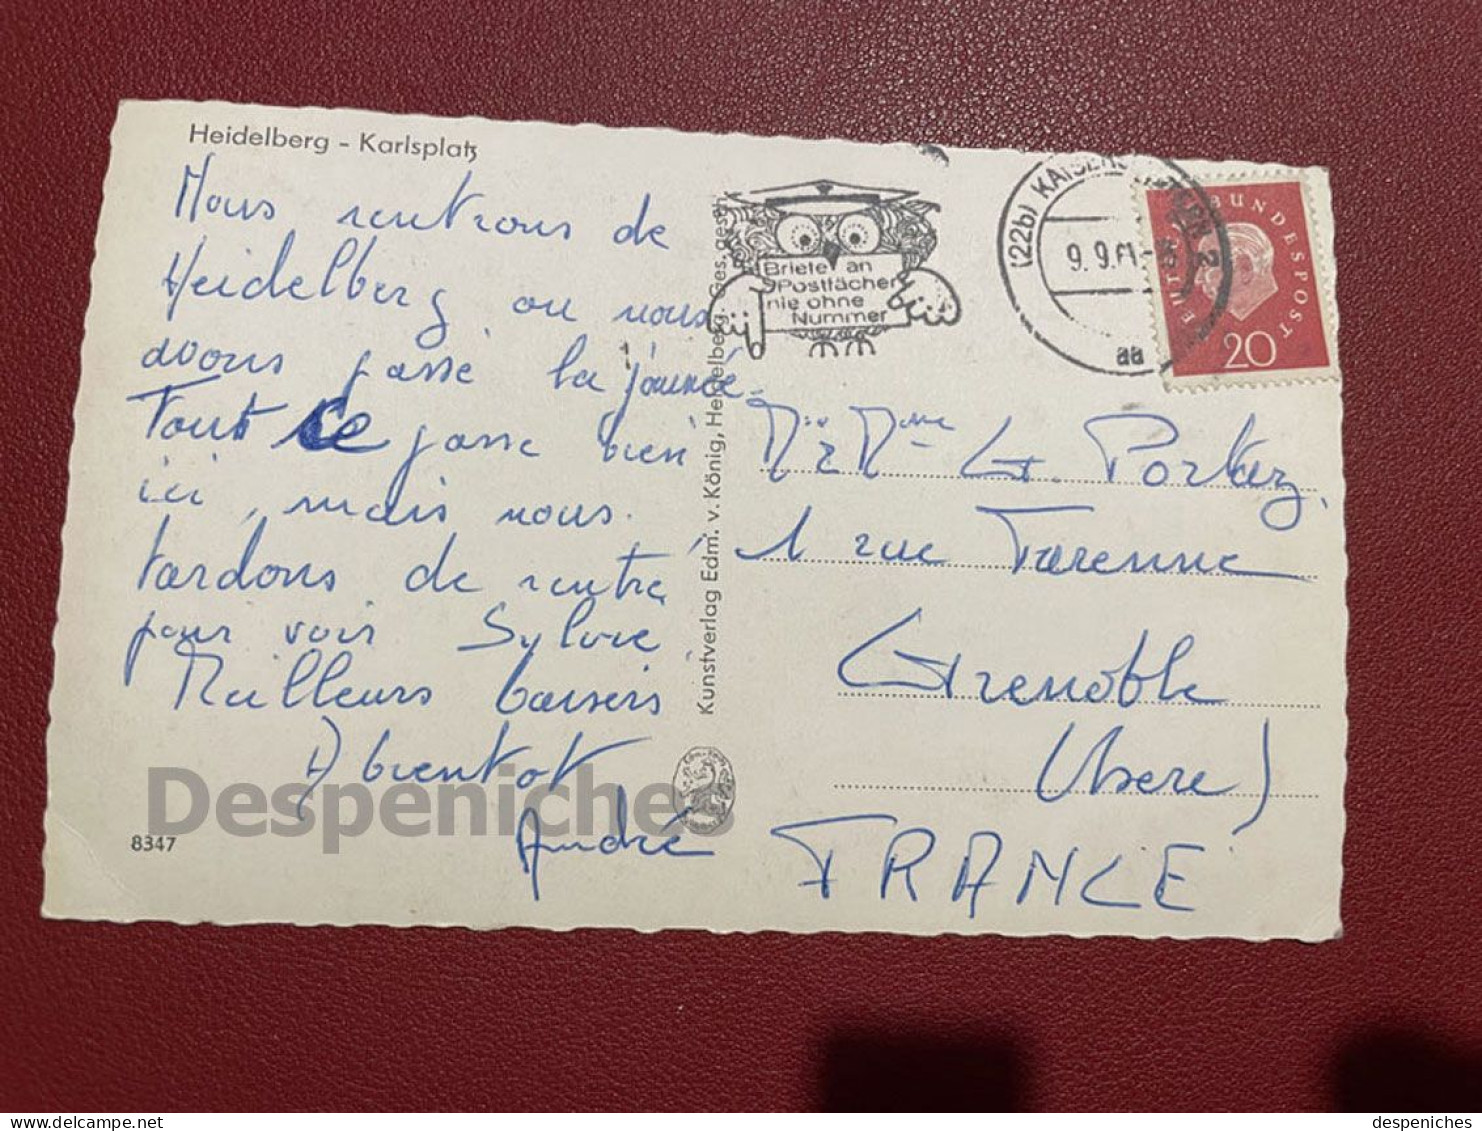 Heidelberg - Karlsplatz
Nous rentrons de
Heidelberg, ou nous
avons passé la journée.
Tout ce passe bien
ici, mais nous
tardons de rentrer
pour voir Sylvie
Meilleurs baisers
A bientot
André
8347
Despeniches
Kunstverlag Edm. v. König, Heidelberg. Ges. gesch.
Briefe an
Postfächer
nie ohne
Nummer
(22b) KAISERSLAUTERN 2
9.9.61
aa
DEUTSCHE BUNDESPOST
20
Mr & Mme G. Portaz
1 rue Farenne
Grenoble
(Isere)
FRANCE
delcampe.net
despeniches